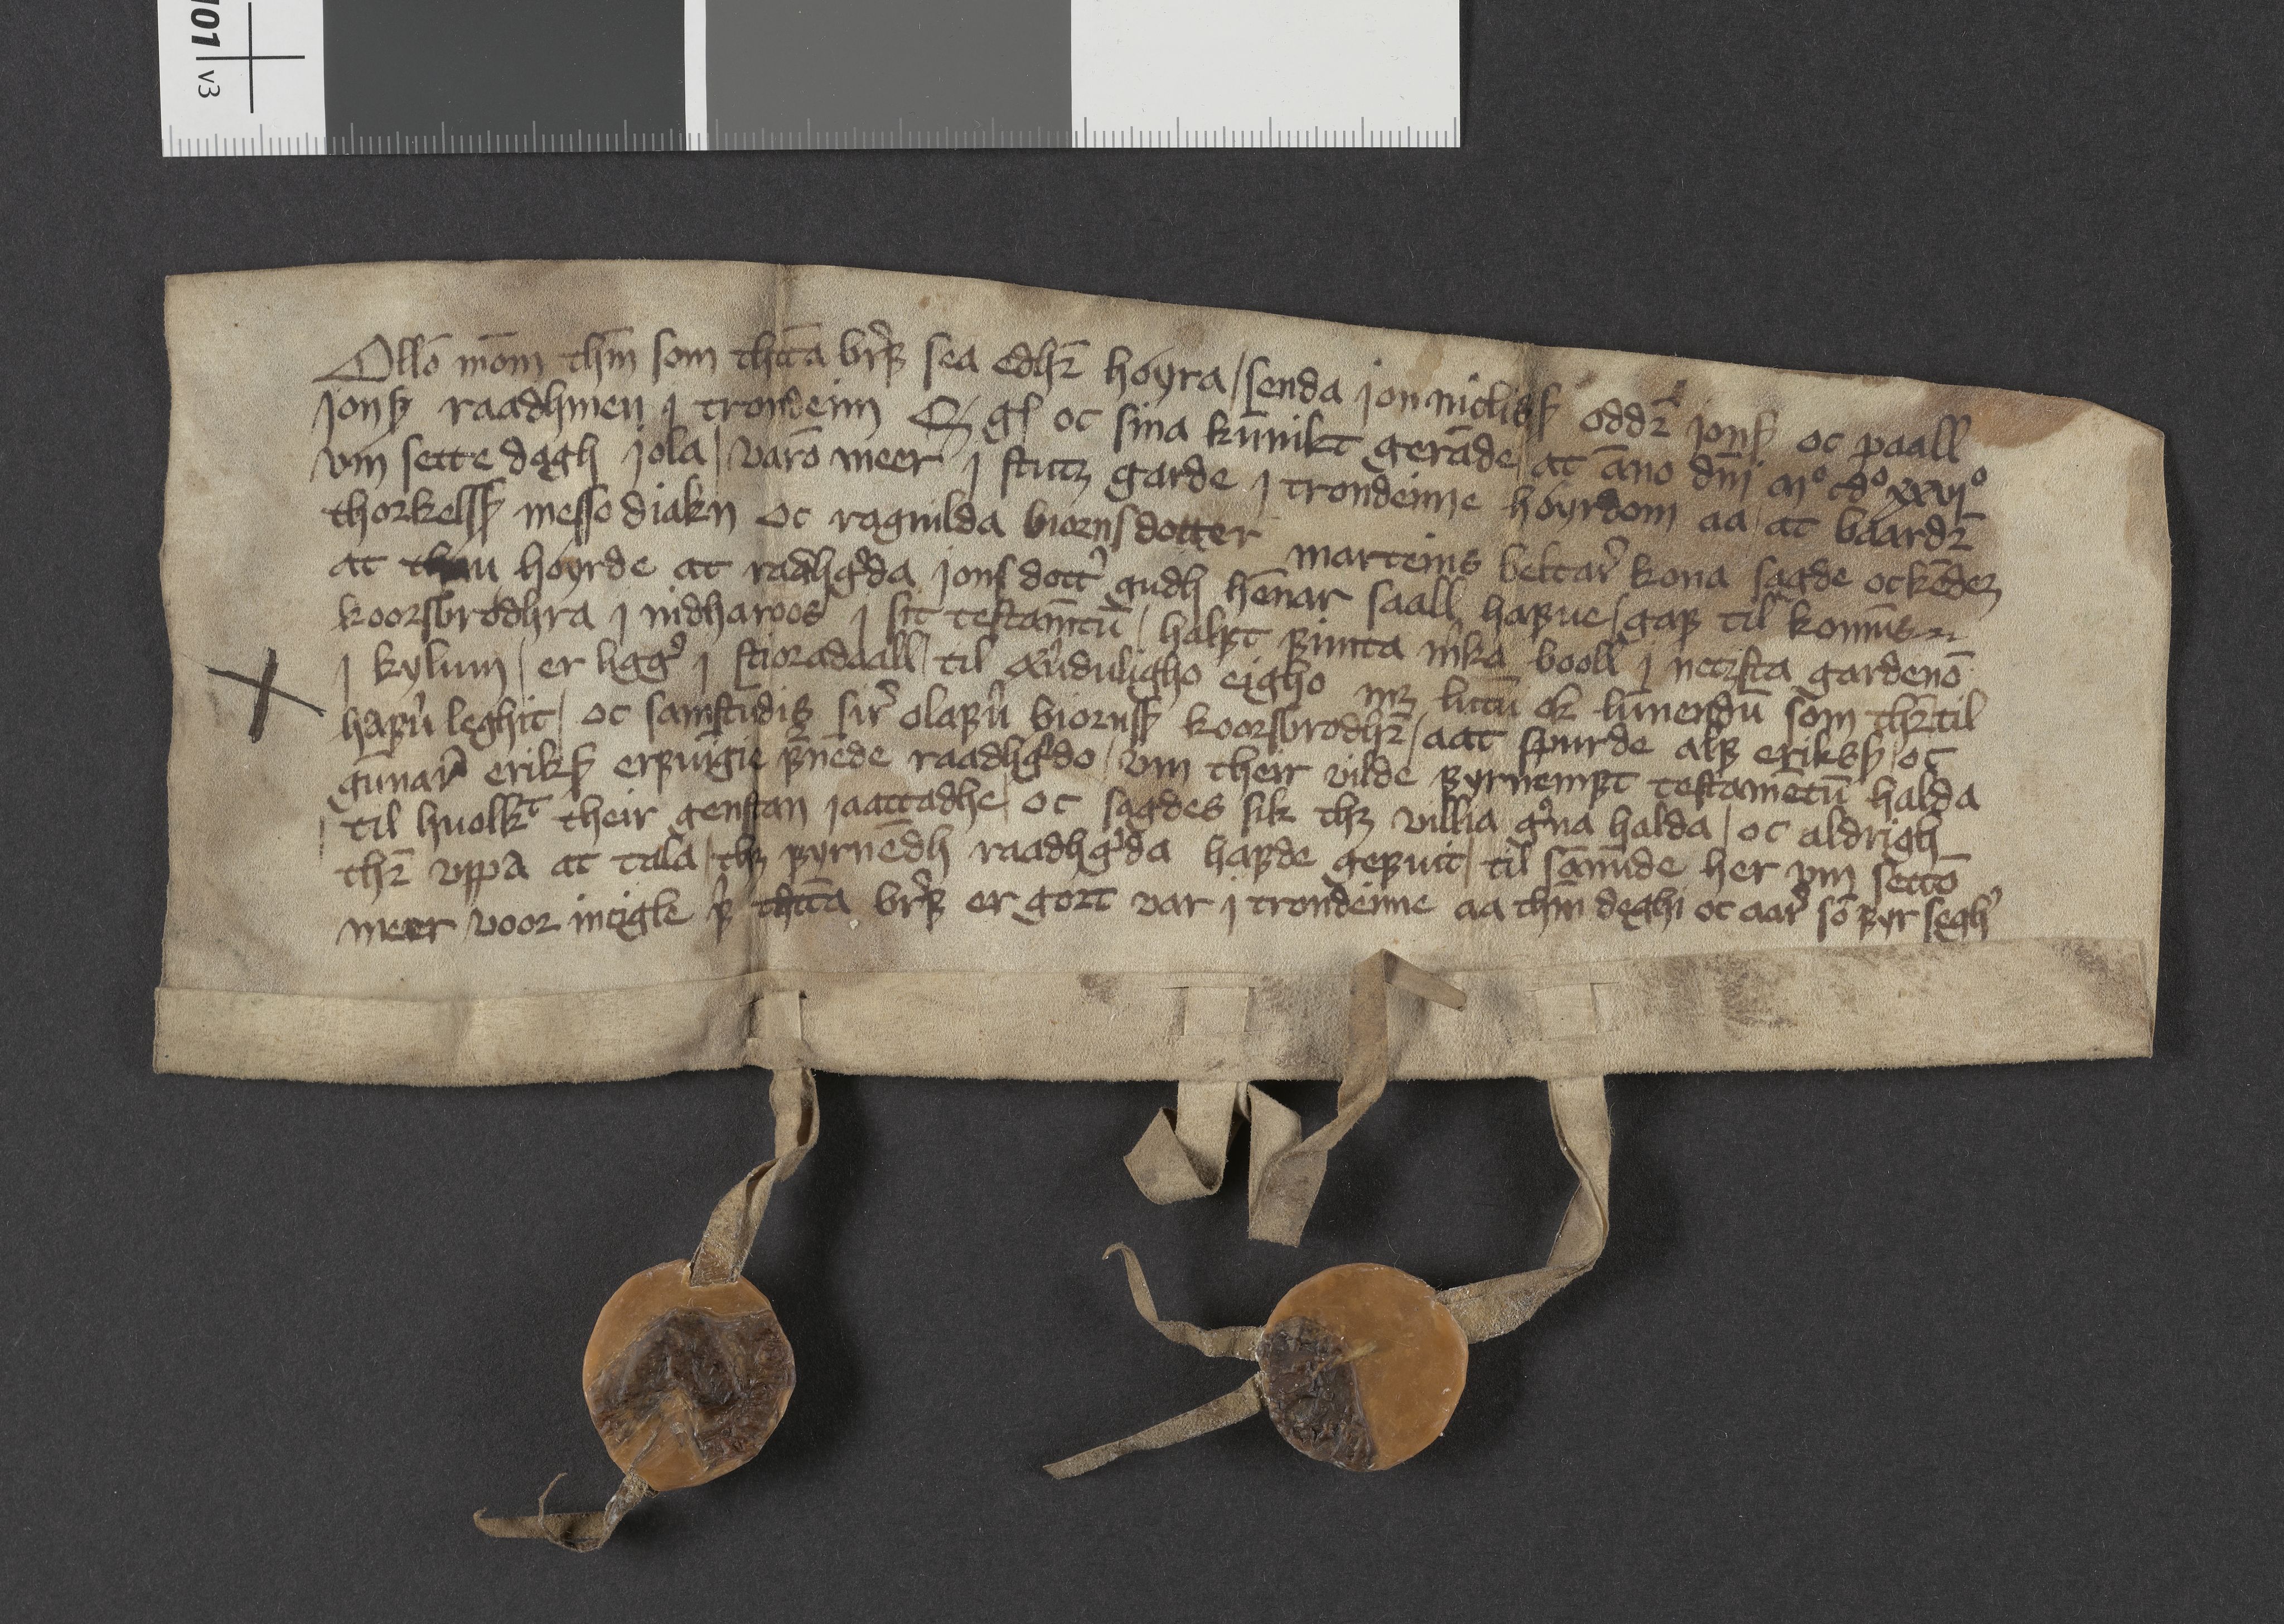 101 v3
Ollō mōm thm̄ som thttā br̃ff sea edhr̄ høyra / senda jon niclisß oddr̄ jonß oc paall
jonß raadhmen j trondeim Q gß oc sina kūnikt gerāde at āno dn̄i mº cdº xxviº
vm sette dagh jola / varō meer j stutz garde j trondeime høyrdom aa / at baardr̄
thorkelsß messo diakn oc ragnilda biornsdotter marteins beltar̓ kona sagde oc kēdez
at thau høyrde at radhg̓da jons dott̓ gudh hēnar saall haffue / gaff til komūs
koorsbrødhra j nidharoos j sit testamtū / halfft fimta m̓ka booll j netzsta gardenō
j kylum / er ligg̓ j stioradaall / til æu̓duligho eigho mz luttū ok lunnendū som thr̄til
haffu̓ leghit / oc samstudis sir̓ olaffu̓ biornsß koorsbrodhr̄ / aat spurde alff eriksß oc
gūnar̓ eriksß erffuīgie ffn̄ede raadhg̓do / vm their vilde fyrnempt testamētū halda
til huolkt their genstan jaattadhe / oc sagdes sik thz villia g̓na halda / oc aldrigh
thr̄ vppā at tala / thz fyrnēdh raadhg̓da haffde geffuit / til sānīde her vm settō
meer voor incigle f̓ thttā br̃ff er gort var j trondeime aa thm̄ deghi oc aar̓ sō fyr segh̓